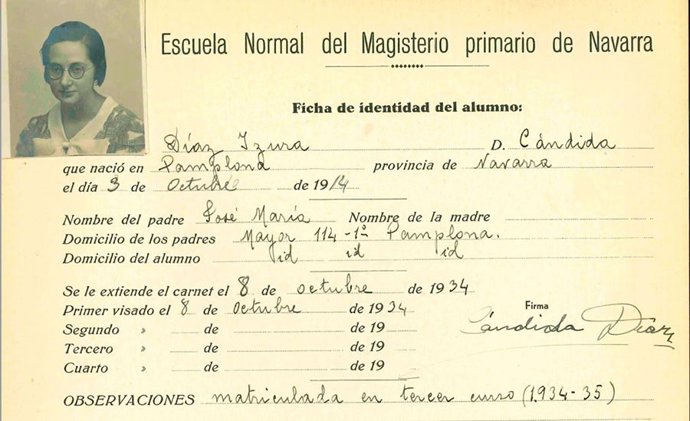 Escuela Normal del Magisterio primario de Navarra
Ficha de identidad del alumno:
Díaz Izura D. Cándida
que nació en Pamplona provincia de Navarra
el día 3 de Octubre de 1914
Nombre del padre José María Nombre de la madre
Domicilio de los padres Mayor 114-1º Pamplona.
Domicilio del alumno id id id
Se le extiende el carnet el 8 de octubre de 1934
Primer visado el 8 de Octubre de 1934
Firma
Cándida Díaz
Segundo » de de 19
Tercero » de de 19
Cuarto » de de 19
OBSERVACIONES matriculada en tercer curso (1.934-35)